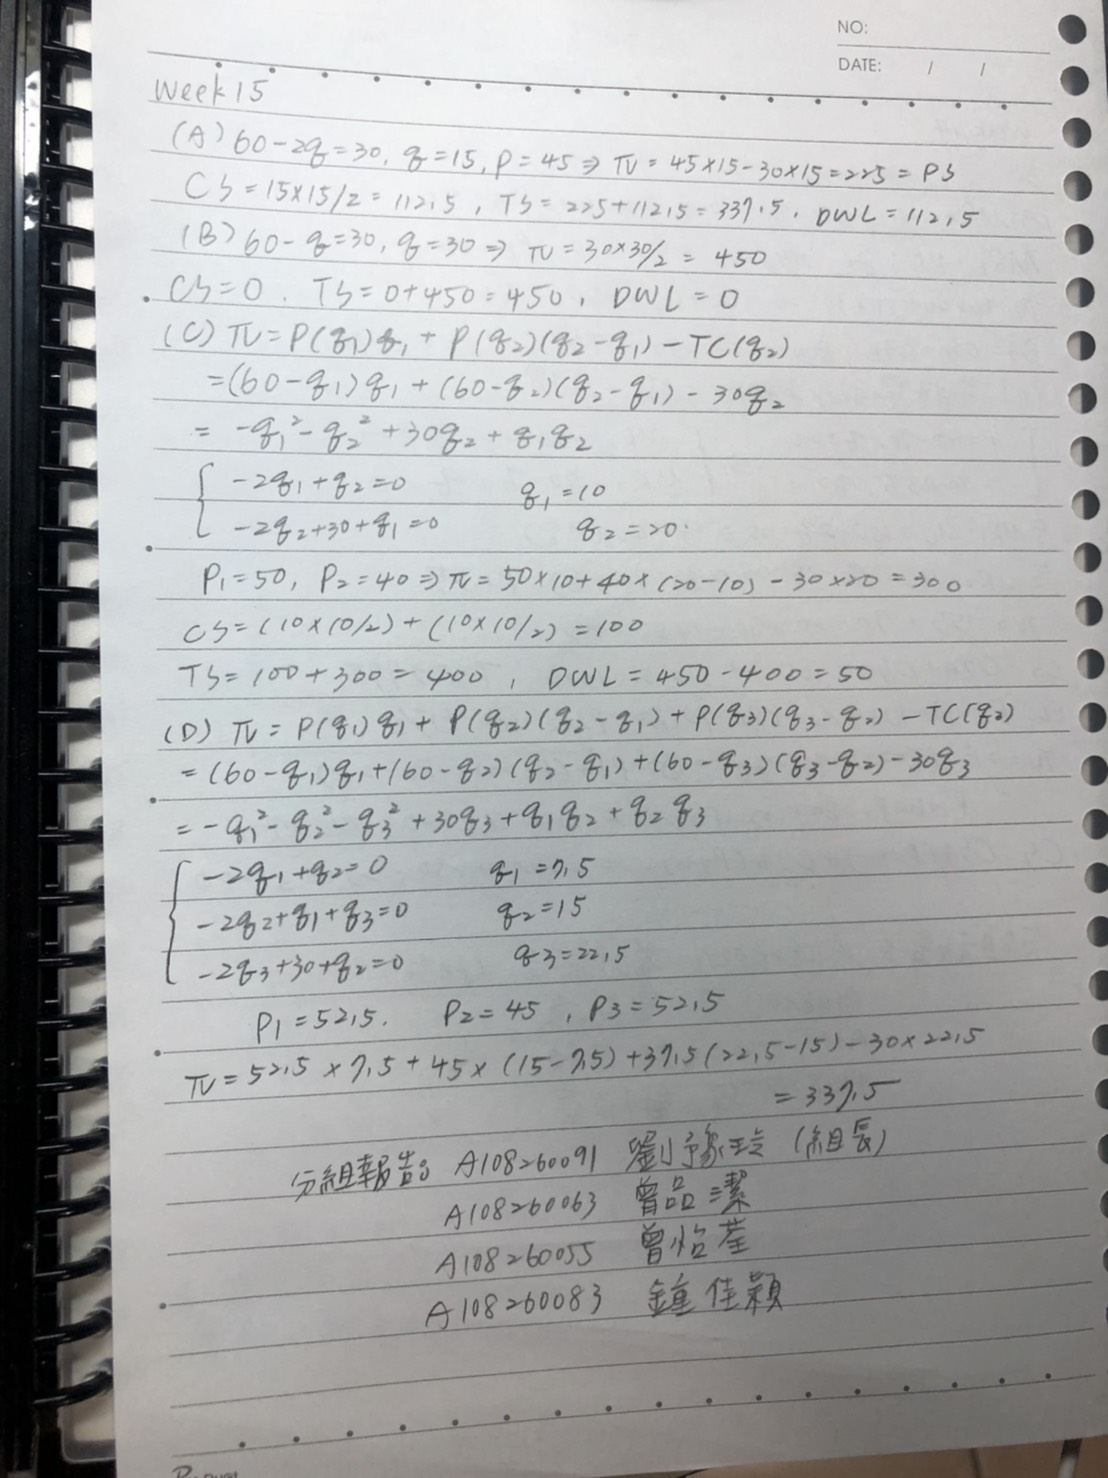 NO:
DATE: / /
Week 15
(A) 60-2q=30, q=15, P=45 ⇒ π = 45×15-30×15=225 = PS
CS = 15×15/2 = 112.5, TS = 225+112.5 = 337.5, DWL = 112.5
(B) 60-q=30, q=30 ⇒ π = 30×30/2 = 450
CS=0. TS=0+450=450, DWL=0
(C) π = P(q₁)q₁ + P(q₂)(q₂-q₁) - TC(q₂)
=(60-q₁)q₁ + (60-q₂)(q₂-q₁) - 30q₂
= -q₁²-q₂²+30q₂+q₁q₂
{ -2q₁+q₂=0 q₁=10
-2q₂+30+q₁=0 q₂=20
P₁=50, P₂=40 ⇒ π = 50×10+40×(20-10)-30×20=300
CS=(10×10/2)+(10×10/2)=100
TS=100+300=400, DWL=450-400=50
(D) π = P(q₁)q₁ + P(q₂)(q₂-q₁)+P(q₃)(q₃-q₂)-TC(q₂)
=(60-q₁)q₁+(60-q₂)(q₂-q₁)+(60-q₃)(q₃-q₂)-30q₃
=-q₁²-q₂²-q₃²+30q₃+q₁q₂+q₂q₃
{ -2q₁+q₂=0 q₁=7.5
-2q₂+q₁+q₃=0 q₂=15
-2q₃+30+q₂=0 q₃=22.5
P₁=52.5. P₂=45, P₃=52.5
π=52.5×7.5+45×(15-7.5)+37.5(22.5-15)-30×22.5
=337.5
分組報告: A108260091 劉予玲 (組長)
A108260063 曾品潔
A108260055 曾怡荃
A108260083 鍾佳穎